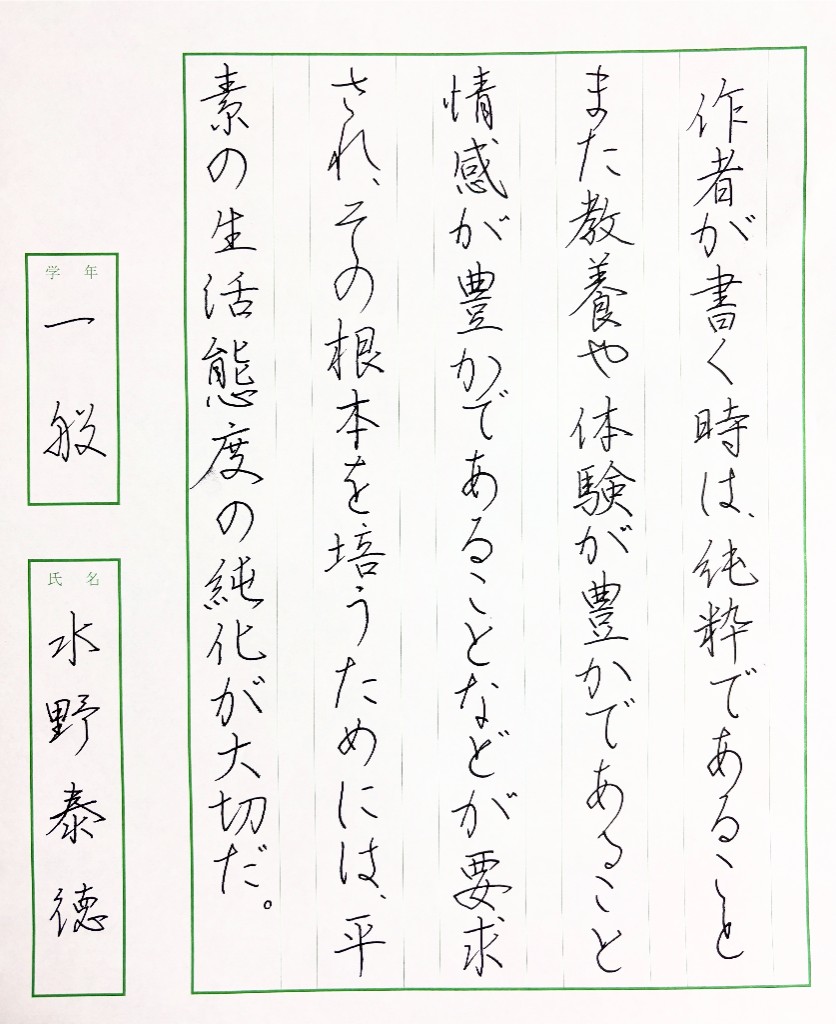 作者が書く時は、純粋であること
また教養や体験が豊かであること
情感が豊かであることなどが要求
され、その根本を培うためには、平
素の生活態度の純化が大切だ。
学年
一般
氏名
水野泰徳